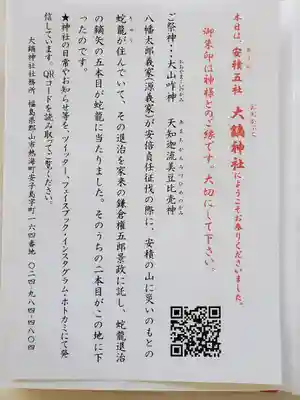 本日は、安積五社 大鏑神社にようこそお参りくださいました。
あさか
おおかぶら
御朱印は神様とのご縁です。大切にして下さい。
ご祭神・・・大山咋神 天知迦流美豆比売神
おおやまくいのかみ
あまちかるみづひめのかみ
八幡太郎義家(源義家)が安倍貞任征伐の際に、安積の山に災いのもとの
蛇龍が住んでいて、その退治を家来の鎌倉権五郎景政に託し、蛇龍退治
の鏑矢の五本目が蛇龍に当たりました。そのうちの二本目がこの地に下
ったのです。
★神社の日常やお知らせ等を、ツイッター、フェイスブック・インスタグラム・ホトカミにて発
信しています。QRコードを読み取ってご覧ください。
大鏑神社社務所 福島県郡山市熱海町安子島字町一六四番地 〇二四-九八四-四八〇四